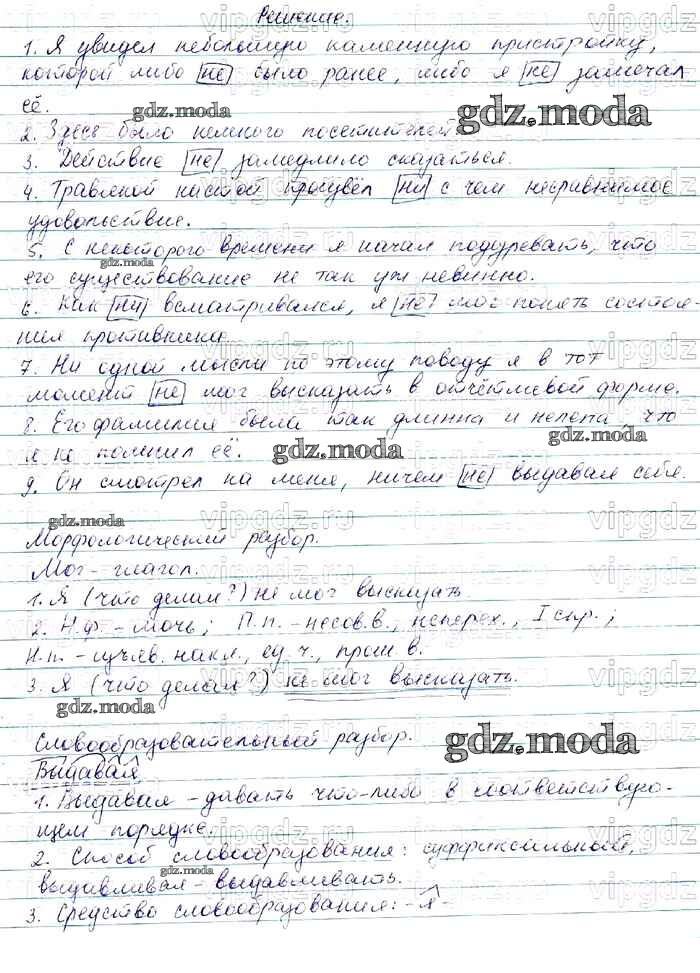 Решение.
1. Я увидел небольшую каменную пристройку,
которой либо не было ранее, либо я не замечал
её.
gdz.moda
gdz.moda
2. Здесь было немного посетителей
3. Действие не замедлило сказаться.
4. Травяной настой произвёл ни с чем несравнимое
удовольствие.
5. С некоторого времени я начал подозревать, что
gdz.moda
его существование не так уж невинно.
6. Как ни всматривался, я не мог понять состоя-
ния противника
7. Ни одной мысли по этому поводу я в тот
момент не мог высказать в отчётливой форме.
8. Его фамилия была так длинна и нелепа что
gdz.moda
я не помнил её.
gdz.moda
9. Он смотрел на меня, ничем не выдавая себя.
gdz.moda
Морфологический разбор.
Мог - глагол.
1. Я (что делал?) не мог высказать.
2. Н.ф. - мочь; П.п. - несов.в., неперех., I спр.;
Н.п. - изъяв. накл., ед.ч., прош.в.
3. Я (что делал?) не мог высказать.
gdz.moda
gdz.moda
Словообразовательный разбор.
Выдавая
1. Выдавая - давать что-либо в соответствую-
щем порядке.
2. Способ словообразования: суффиксальный,
gdz.moda
- выдавливать.
3. Средство словообразования: -я-
gdz.moda
vipgdz.ru